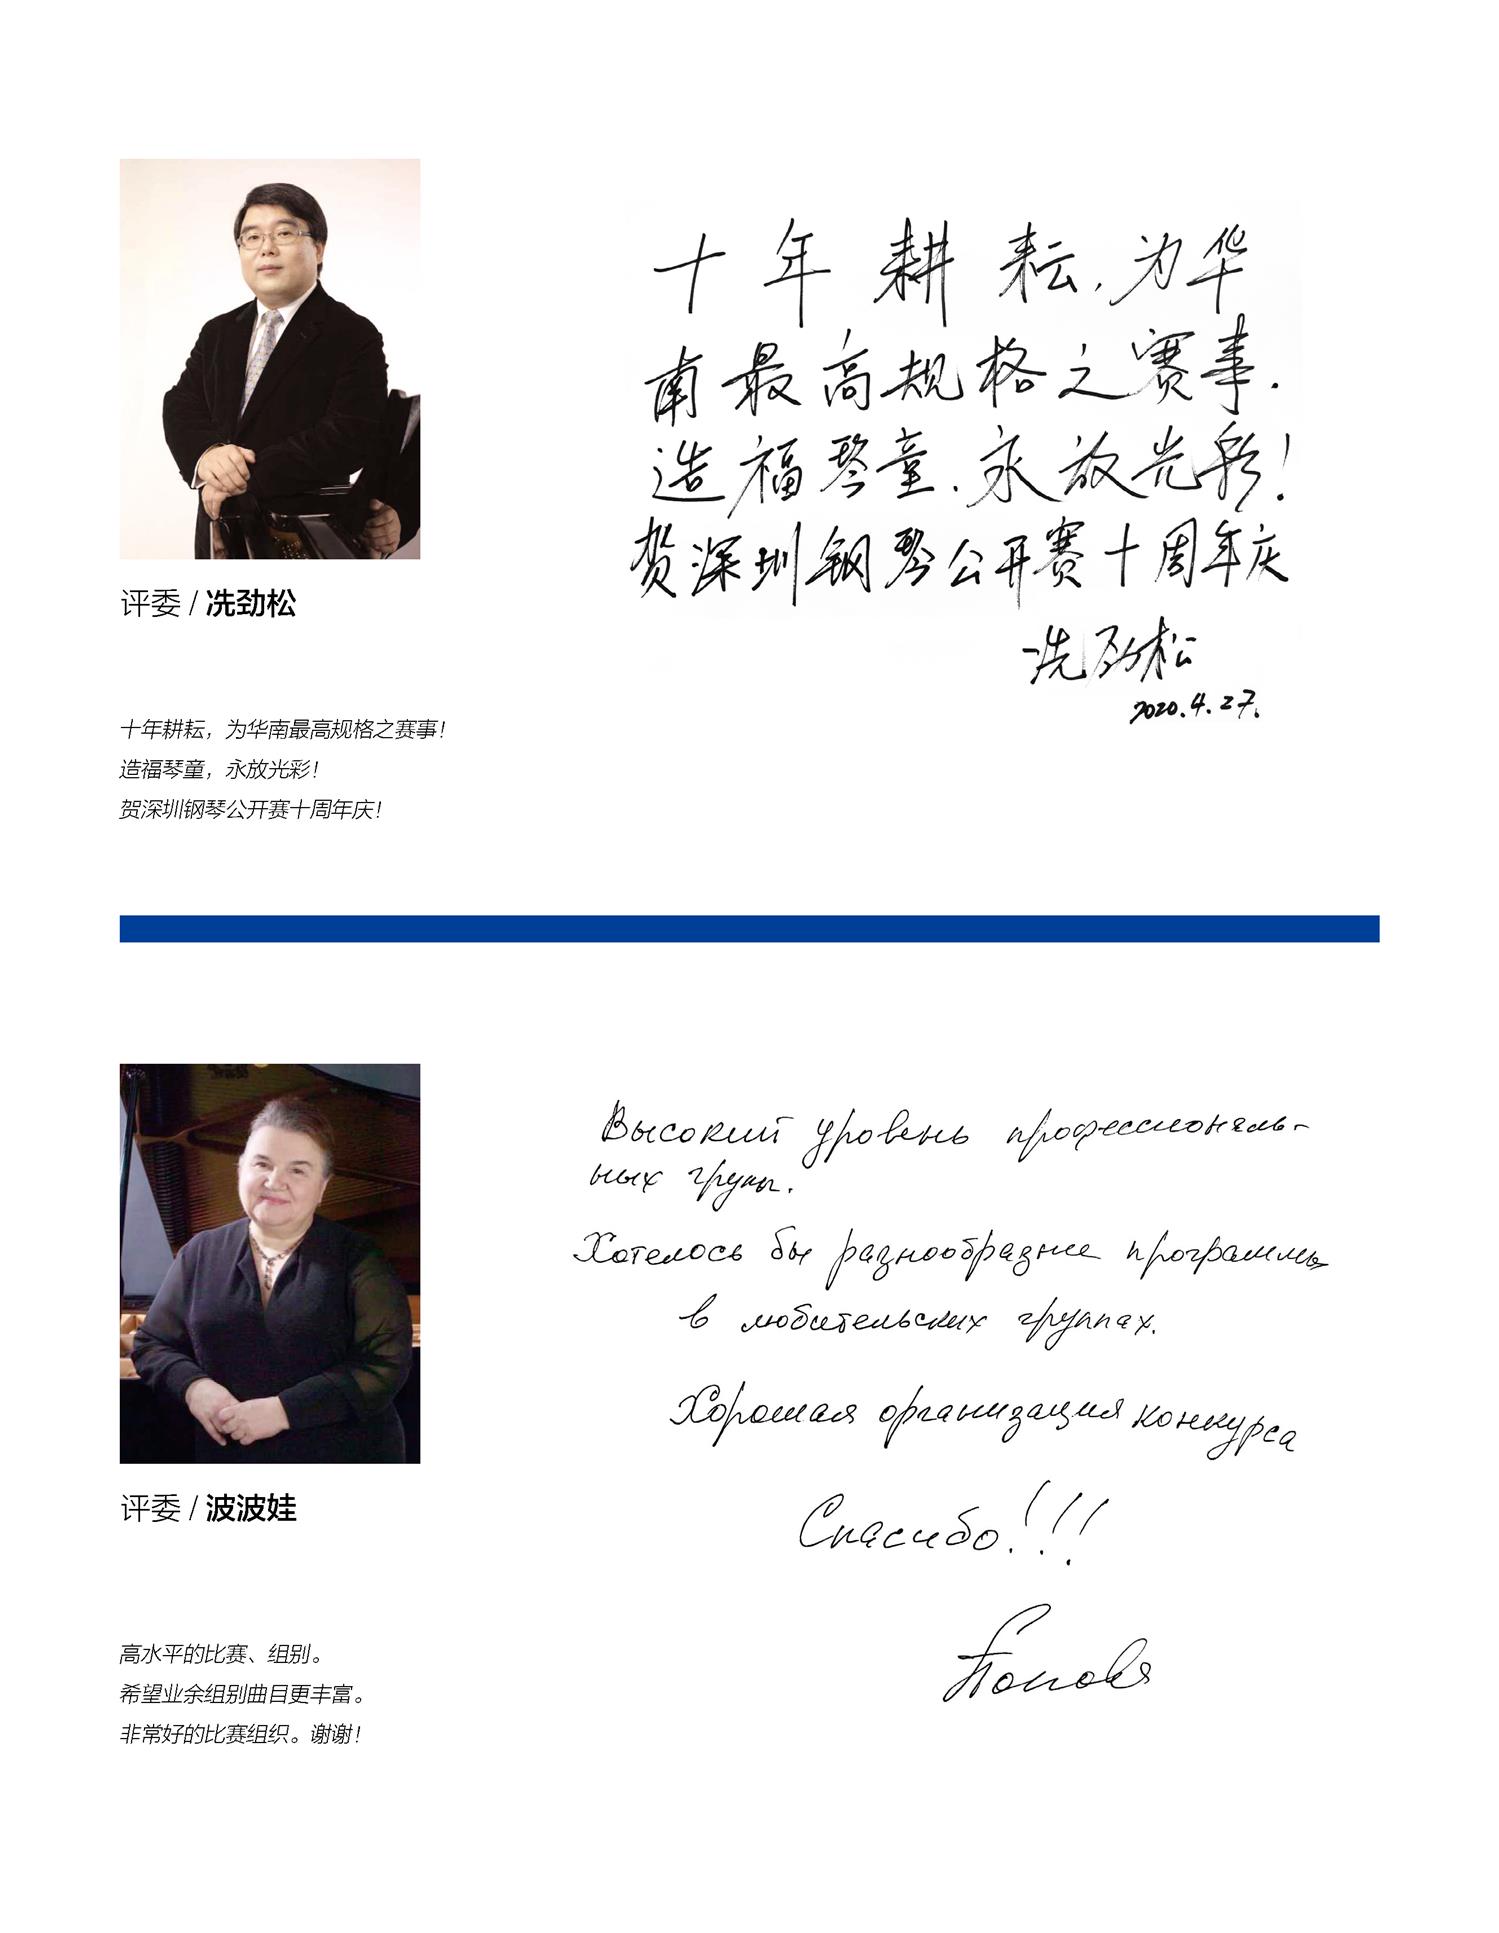 十年耕耘,为华
南最高规格之赛事.
造福琴童.永放光彩!
贺深圳钢琴公开赛十周年庆
冼劲松
2020.4.27.
评委 / 冼劲松
十年耕耘，为华南最高规格之赛事！
造福琴童，永放光彩！
贺深圳钢琴公开赛十周年庆！
Высокий уровень профессиональ-
ных групп.
Хотелось бы разнообразие программы
в любительских группах.
Хорошая организация конкурса
Спасибо!!!
Попова
评委 / 波波娃
高水平的比赛、组别。
希望业余组别曲目更丰富。
非常好的比赛组织。谢谢！